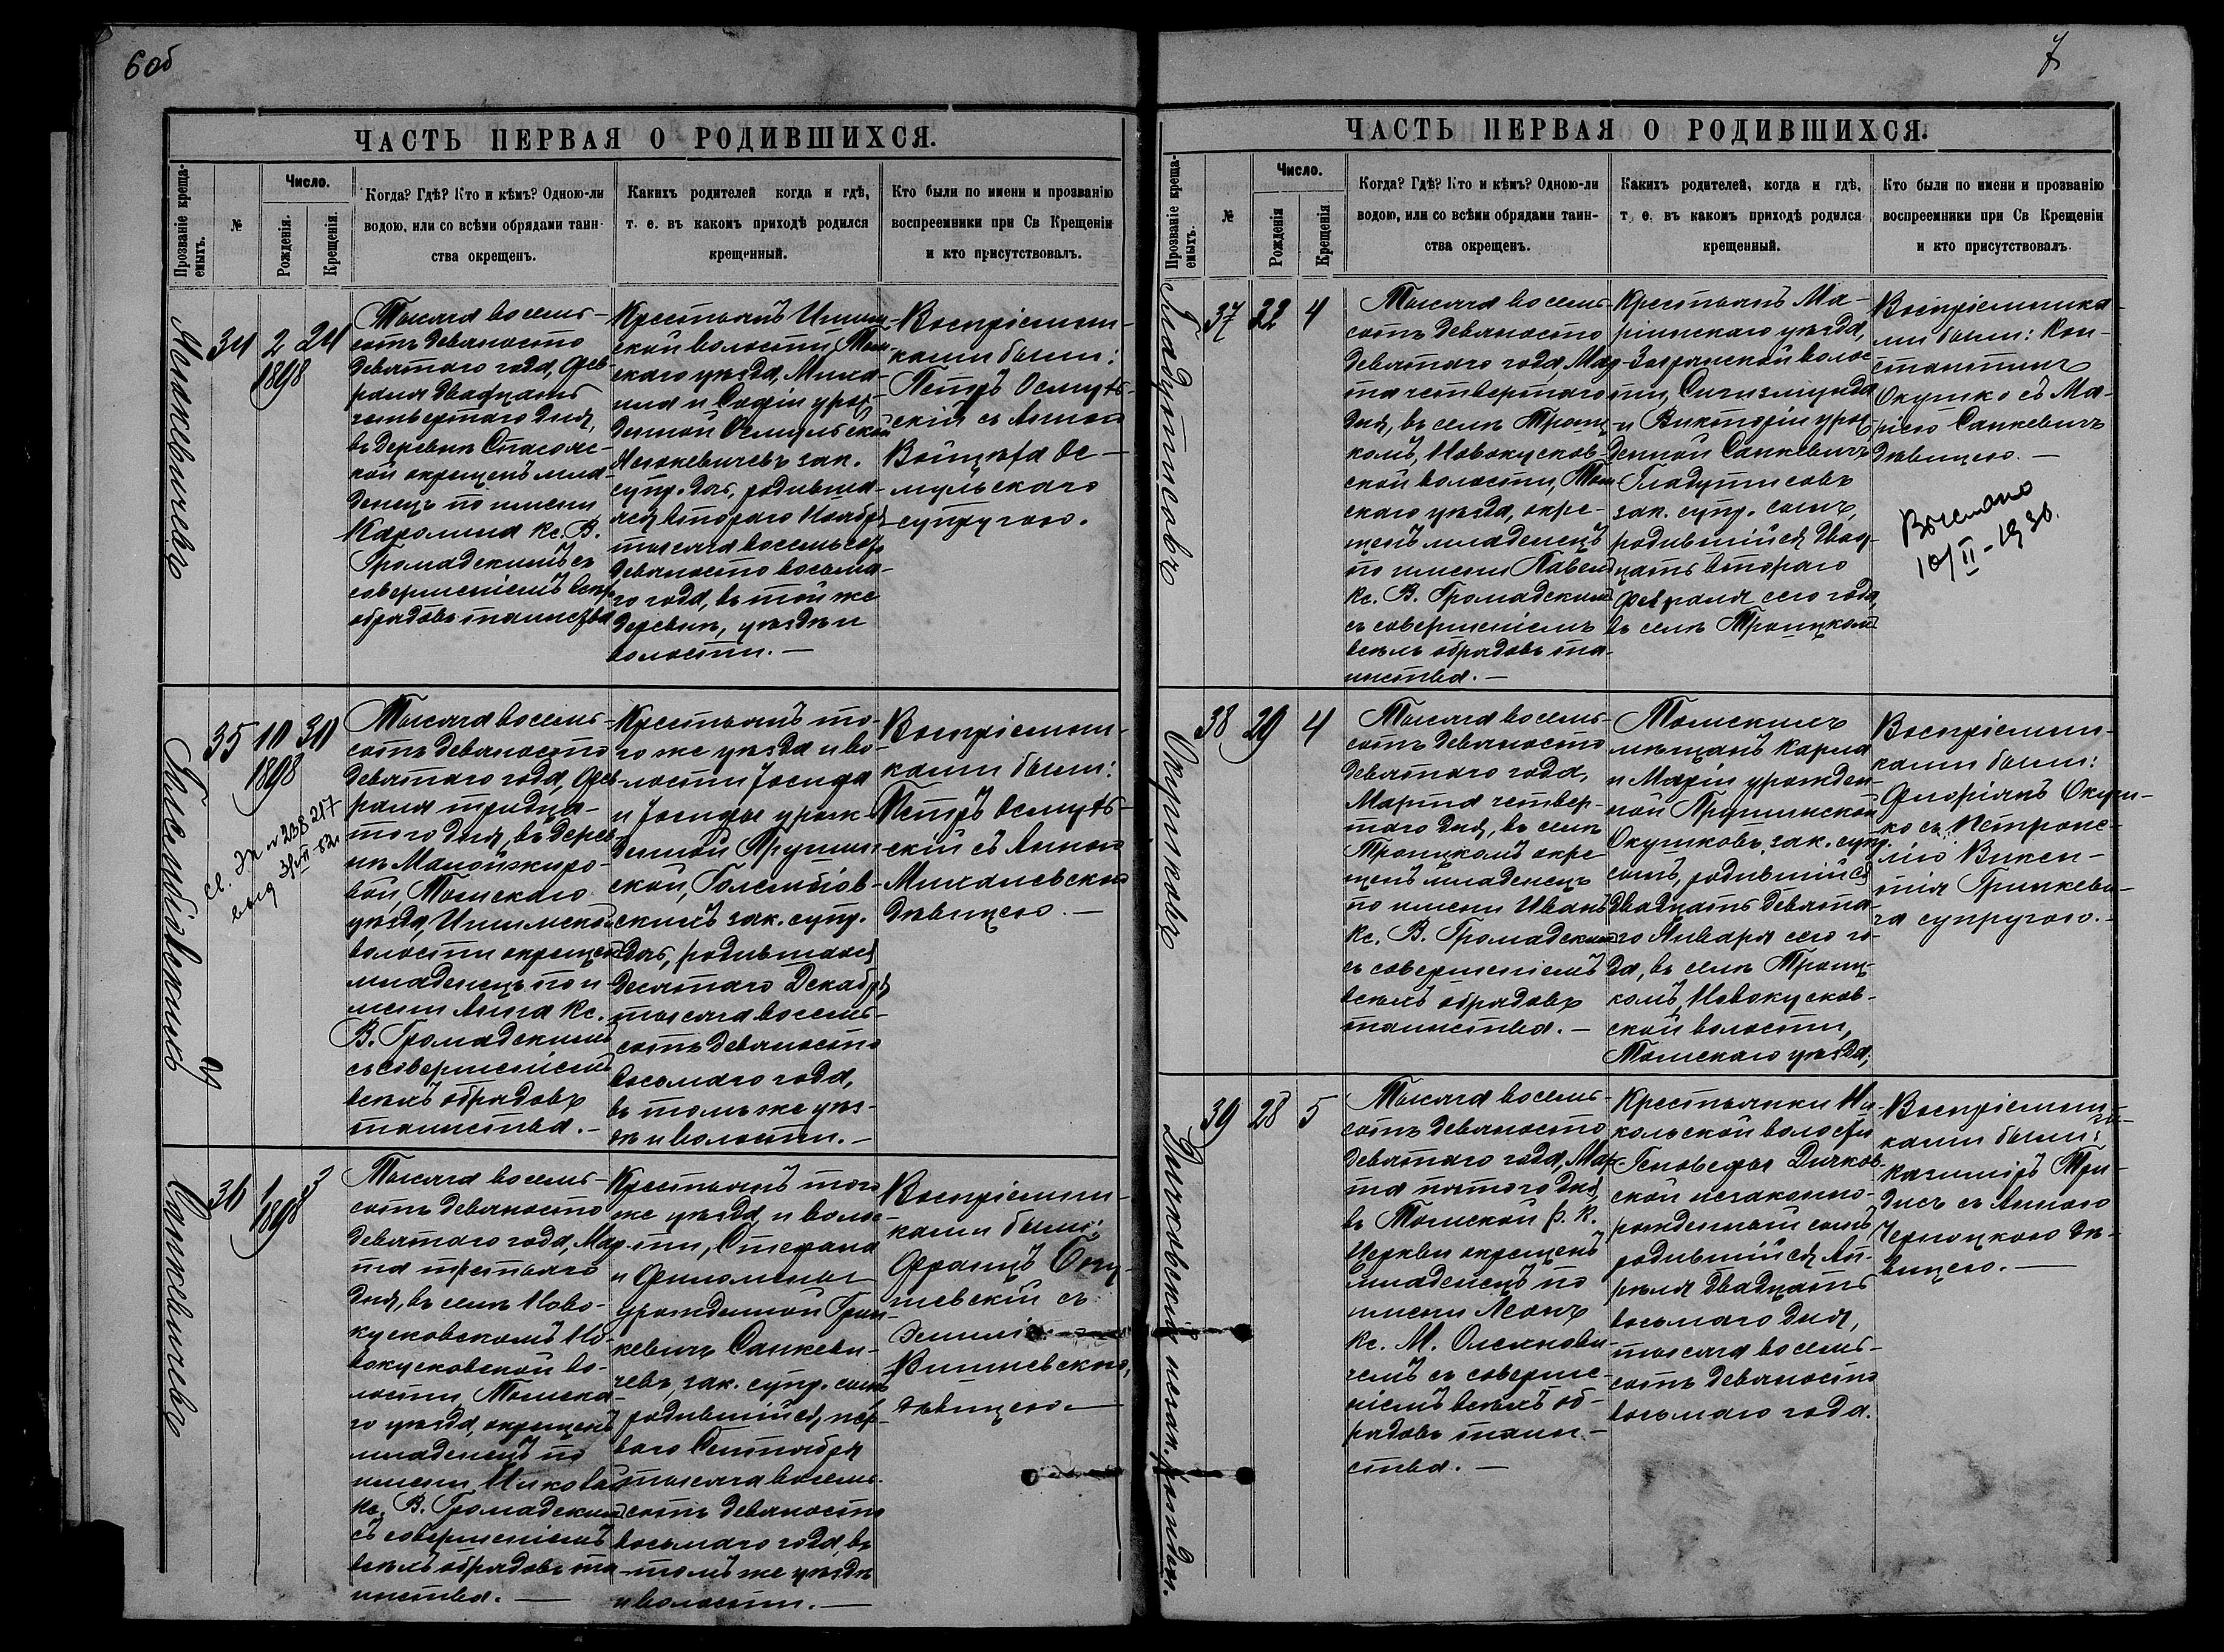 6 об
ЧАСТЬ ПЕРВАЯ О РОДИВШИХСЯ.
Прозваніе креща-
емыхъ.
№
Число.
Рожденія.
Крещенія.
Когда? Гдѣ? Кто и кѣмъ? Одною-ли
водою, или со всѣми обрядами таин-
ства окрещенъ.
Какихъ родителей когда и гдѣ,
т. е. въ какомъ приходѣ родился
крещенный.
Кто были по имени и прозванію
воспреемники при Св Крещеніи
и кто присутствовалъ.
34 2 24
1898
Тысяча восемь-
сотъ девяносто
девятаго года, Фев-
раля двадцать
четвертаго дня,
въ деревнѣ
окрещенъ мла-
денецъ по имени
Каролина Кс. В.
Громадскимъ съ
совершеніемъ всѣхъ
обрядовъ таинства
Крестьянъ Ишим-
ской волости, Том-
скаго уѣзда, Миха-
ила и Софіи урож-
денной Осмульской
зак.
супр. дочь, родивша-
яся втораго Ноября
тысяча восемьсотъ
девяносто восьма-
го года, въ той же
деревнѣ, уѣздѣ и
волости. —
Воспріемни-
ками были:
Петръ Осмуль-
скій съ Анною
Войцѣха Ос-
мульскаго
супругою.
Голембіовскихъ
35 10 30
1898
Тысяча восемь-
сотъ девяносто
девятаго года, Фев-
раля тридца-
таго дня, въ дерев-
нѣ Малой Жиро-
вой, Томскаго
уѣзда, Ишимской
волости окрещенъ
младенецъ по и-
мени Анна Кс.
В. Громадскимъ
съ совершеніемъ
всѣхъ обрядовъ
таинства. —
Крестьянъ то-
го же уѣзда и во-
лости Іосифа
и Іосифы урож-
денной Прушин-
ской, Голембіов-
скихъ зак. супр.
дочь, родившаяся
десятаго Декабря
тысяча восемь-
сотъ девяносто
восьмаго года,
въ томъ же уѣз-
дѣ и волости. —
Воспріемни-
ками были:
Петръ Осмуль-
скій съ Анною
Михалевскою
дѣвицею. —
Санкевичевъ
36 1 3
1898
Тысяча восемь-
сотъ девяносто
девятаго года, Мар-
та третьяго
дня, въ селѣ Ново-
кусковскомъ Но-
вокусковской во-
лости, Томска-
го уѣзда, окрещенъ
младенецъ по
имени Николай
Кс. В. Громадскимъ
съ совершеніемъ
всѣхъ обрядовъ та-
инства. —
Крестьянъ того
же уѣзда и волос-
ти, Стефана
и Филомены
урожденной Грин-
кевичъ Санкеви-
чевъ, зак. супр. сынъ
родившійся, пер-
ваго Сентября
тысяча восемь-
сотъ девяносто
восьмаго года, въ
томъ же уѣздѣ
и волости. —
Воспріемни-
ками были:
Францъ
съ
Эмиліею
Вишневскою,
дѣвицею. —
7
ЧАСТЬ ПЕРВАЯ О РОДИВШИХСЯ.
Прозваніе креща-
емыхъ.
№
Число.
Рожденія
Крещенія
Когда? Гдѣ? Кто и кѣмъ? Одною-ли
водою, или со всѣми обрядами таин-
ства окрещенъ.
Какихъ родителей, когда и гдѣ,
т. е. въ какомъ приходѣ родился
крещенный.
Кто были по имени и прозванію
воспреемники при Св Крещеніи
и кто присутствовалъ.
Гладутисовъ
37 22 4
Тысяча восемь-
сотъ девяносто
девятаго года, Мар-
та четвертаго
дня, въ селѣ Троиц-
комъ, Новокусков-
ской волости, Том-
скаго уѣзда, окре-
щенъ младенецъ
по имени Павелъ
Кс. В. Громадскимъ
съ совершеніемъ
всѣхъ обрядовъ та-
инства. —
Крестьянъ Ма-
ріинскаго уѣзда,
волос-
ти, Сигизмунда
и Викторіи урож-
денной Санкевичъ
Гладутисовъ
зак. супр. сынъ,
родившійся двад-
цать втораго
Февраля сего года,
въ селѣ Троицкомъ
Воспріемника-
ми были: Кон-
стантинъ
Окушко съ Ма-
ріею Санкевичъ
дѣвицею. —
10/II-1936.
Окушковъ
38 29 4
Тысяча восемь-
сотъ девяносто
девятаго года,
Марта четвер-
таго дня, въ селѣ
Троицкомъ окре-
щенъ младенецъ
по имени Иванъ
Кс. В. Громадскимъ
съ совершеніемъ
всѣхъ обрядовъ
таинства. —
Томскихъ
мѣщанъ Карла
и Маріи урожден-
ной Прушинской
Окушковъ, зак. супр.
сынъ, родившійся
двадцать девята-
го Января сего го-
да, въ селѣ Троиц-
комъ, Новокусков-
ской волости,
Томскаго уѣзда,
Воспріемни-
ками были:
Флоріанъ Окуш-
ко съ Петроне-
лію Викен-
тія Гринкеви-
ча супругою. —
незак. рожден.
39 28 5
Тысяча восемь-
сотъ девяносто
девятаго года, Мар-
та пятаго дня,
въ Томской р. К.
Церкви окрещенъ
младенецъ по
имени Леонъ
Кс. М. Олехнови-
чемъ съ соверше-
ніемъ всѣхъ об-
рядовъ таин-
ства. —
Крестьянки Ни-
кольской волости
Геновефы Дичков-
ской незаконно-
рожденный сынъ,
родившійся Ап-
рѣля двадцать
восьмаго дня,
тысяча восемь-
сотъ девяносто
восьмаго года.
Воспріемни-
ками были:
Казиміръ
съ Анною
Черноцкою дѣ-
вицею. —